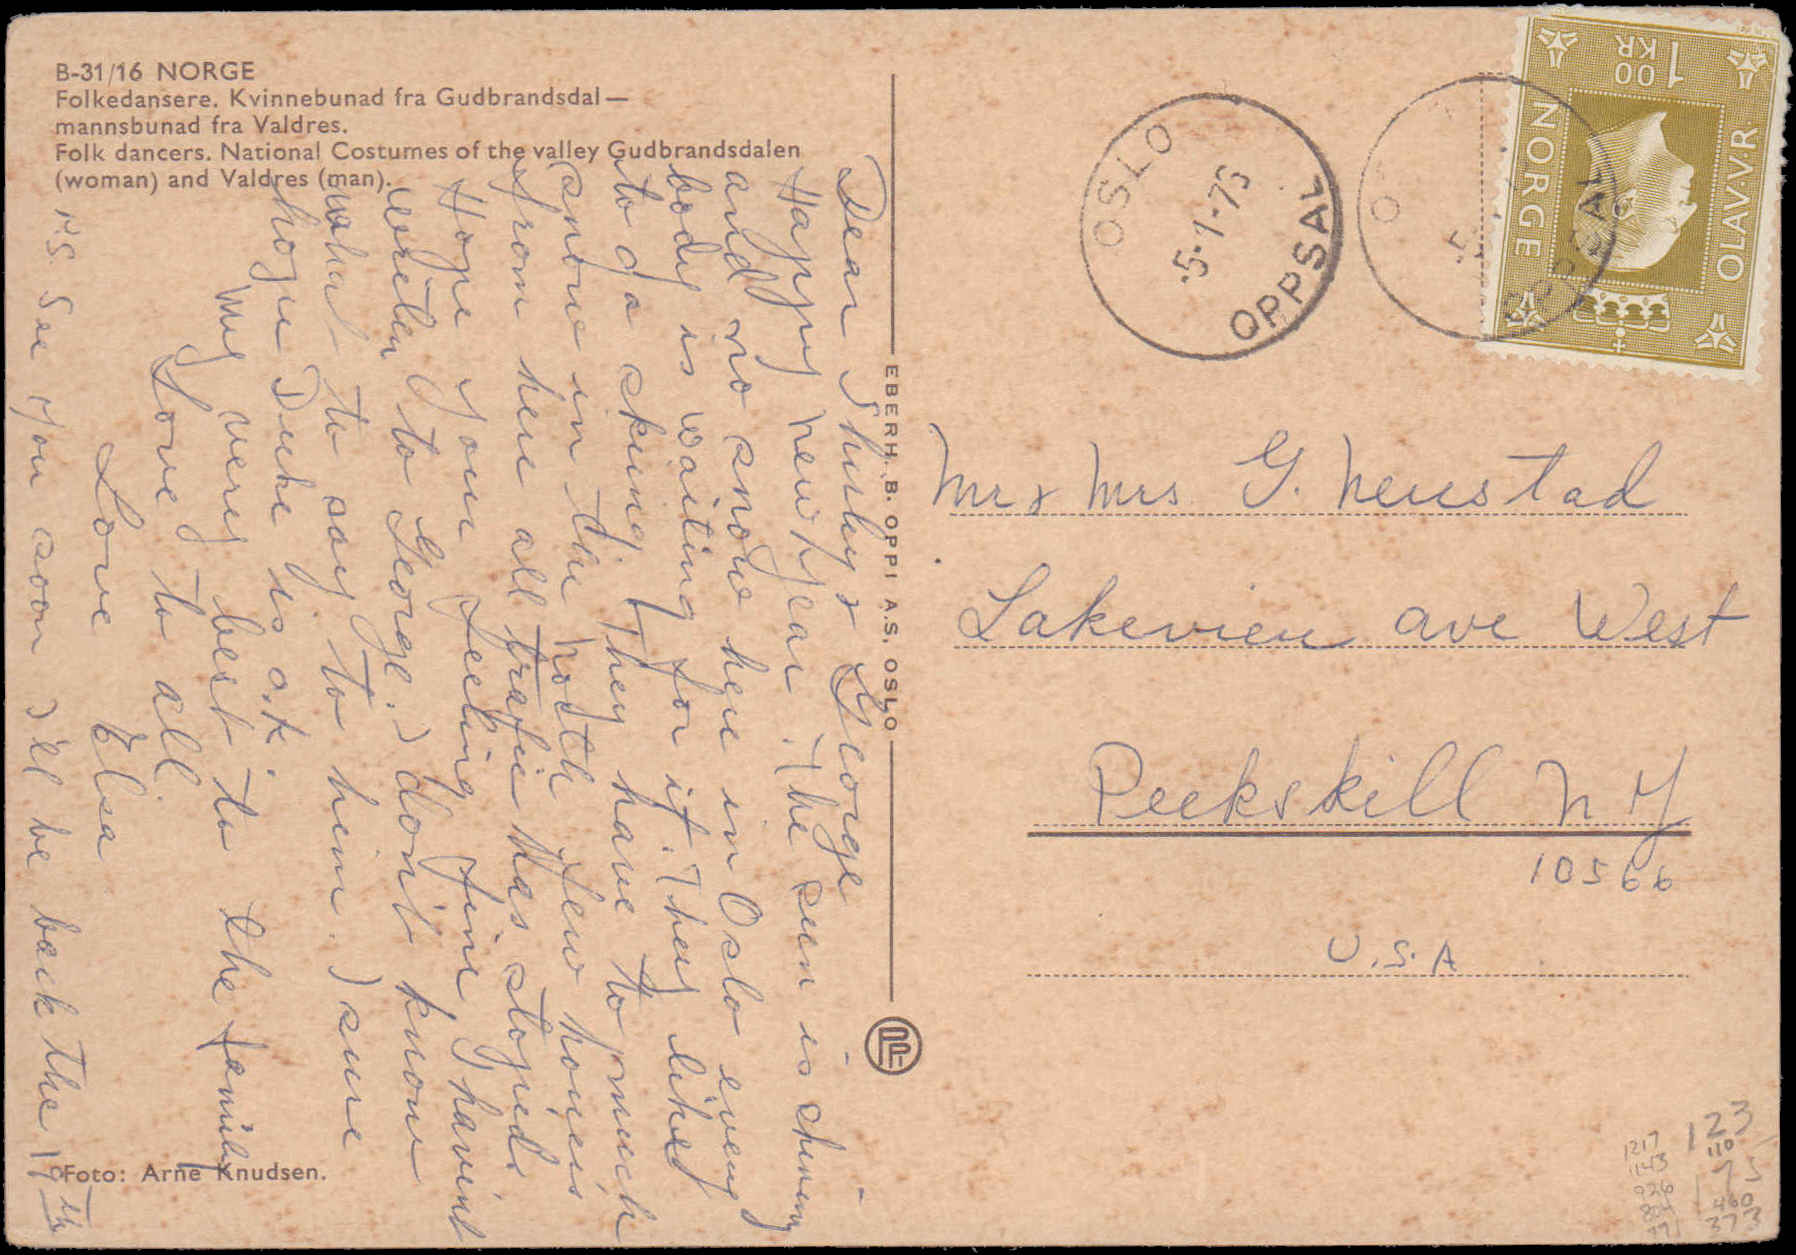 B-31/16 NORGE
Folkedansere. Kvinnebunad fra Gudbrandsdal —
mannsbunad fra Valdres.
Folk dancers. National Costumes of the valley Gudbrandsdalen
(woman) and Valdres (man).
Dear Shirley & George
Happy new year. The sun is shining
and no snow here in Oslo every
body is waiting for it. They liked
to go skiing. They have to much
snow in the north few houers
from here all trafic has stoped.
Hope your feeling fine, havint
writen to George. I don't know
what to say to him. I sure
hope Duke is o.k.
My very best to the family
Love to all
Love Elsa
P.S. See you soon I'll be back the 19th
Foto: Arne Knudsen.
EBERH. B. OPPI A.S. OSLO
OSLO
5-1-76
OPPSAL
O
5
OPPSAL
1 00
KR
NORGE
OLAV.V.R.
Mr & Mrs G. Neustad
Lakeview ave West
Peekskill NY
10566
U.S.A
123
110
75
460
373
1217
143
926